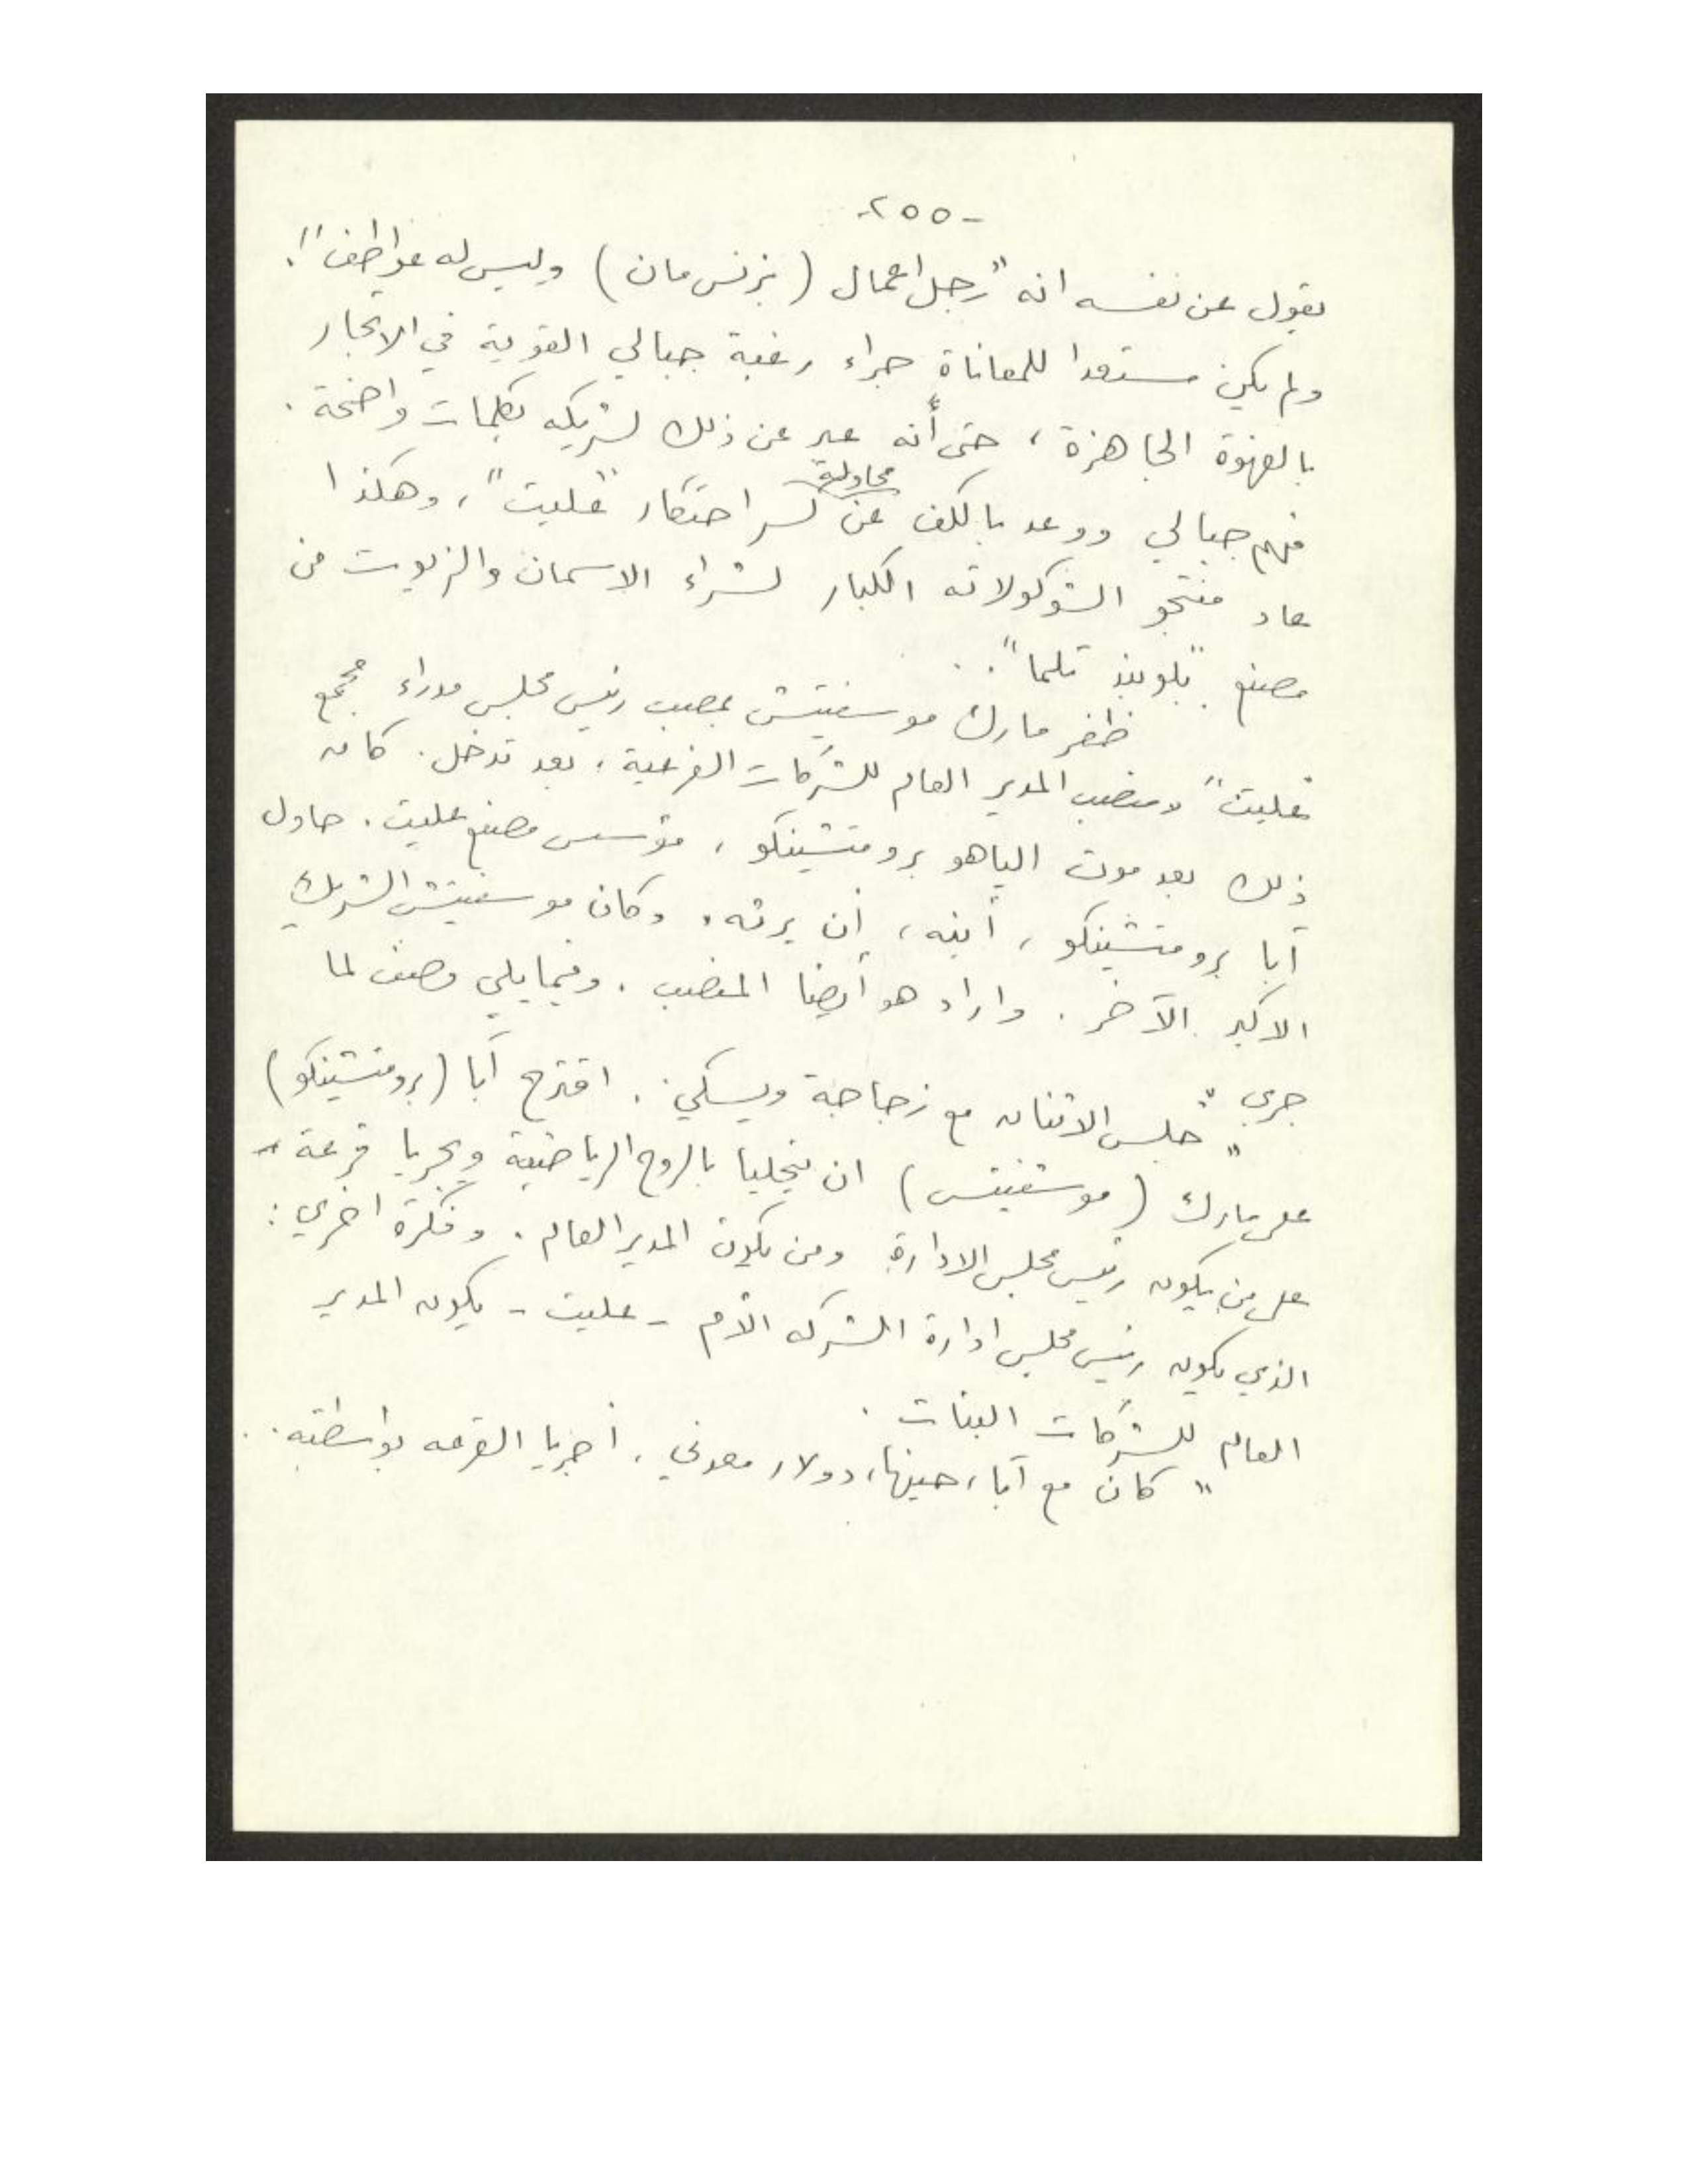 -٢٥٥-
يقول عن نفسه انه "رجل اعمال (بزنس مان) وليس له عواطف"!
ولم يكن مستعدا للمعاناة جراء رغبة جبالي القوية في الاتجار
بالقهوة الجاهزة، حتى أنه عبر عن ذلك لشريكه بكلمات واضحة.
فهم جبالي ووعد بالكف عن محاولة كسر احتكار "عليت"، وهكذا
عاد منتجو الشوكولاته الكبار لشراء الاسمان والزيوت من
مصنع "بلوبند تلما"..
ظفر مارك موسفيتش بمصب رئيس مجلس مدراء مجمع
"عليت" ومنصب المدير العام للشركات الفرعية، بعد تدخل. كان
ذلك بعد موت الياهو برومتشينكو، مؤسس مصنع عليت. حاول
آبا برومتشينكو، أبنه، أن يرثه. وكان موسفيتش الشريك
الاكبر الآخر. واراد هو أيضا المنصب. وفيما يلي وصف لما
جرى:
"جلس الاثنان مع زجاجة ويسكي. اقترح آبا (برومتشينكو)
على مارك (موسفيتس) ان يتحليا بالروح الرياضية ويجريا قرعة -
على من يكون رئيس مجلس الادارة ومن يكون المدير العام. وفكرة اخرى:
الذي يكون رئيس مجلس ادارة الشركه الأم - عليت - يكون المدير
العام للشركات البنات.
"كان مع آبا، حينها، دولار معدني. أجريا القرعه بواسطته..